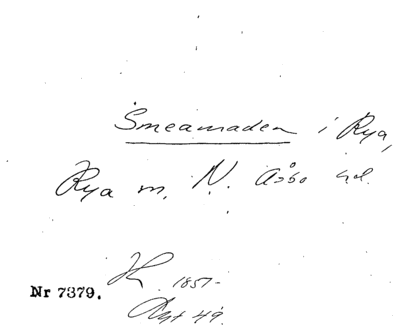 Smeamaden i Rya,
Rya m. N. Åsbo hd.
H 1857-
Nr 7379.
49.